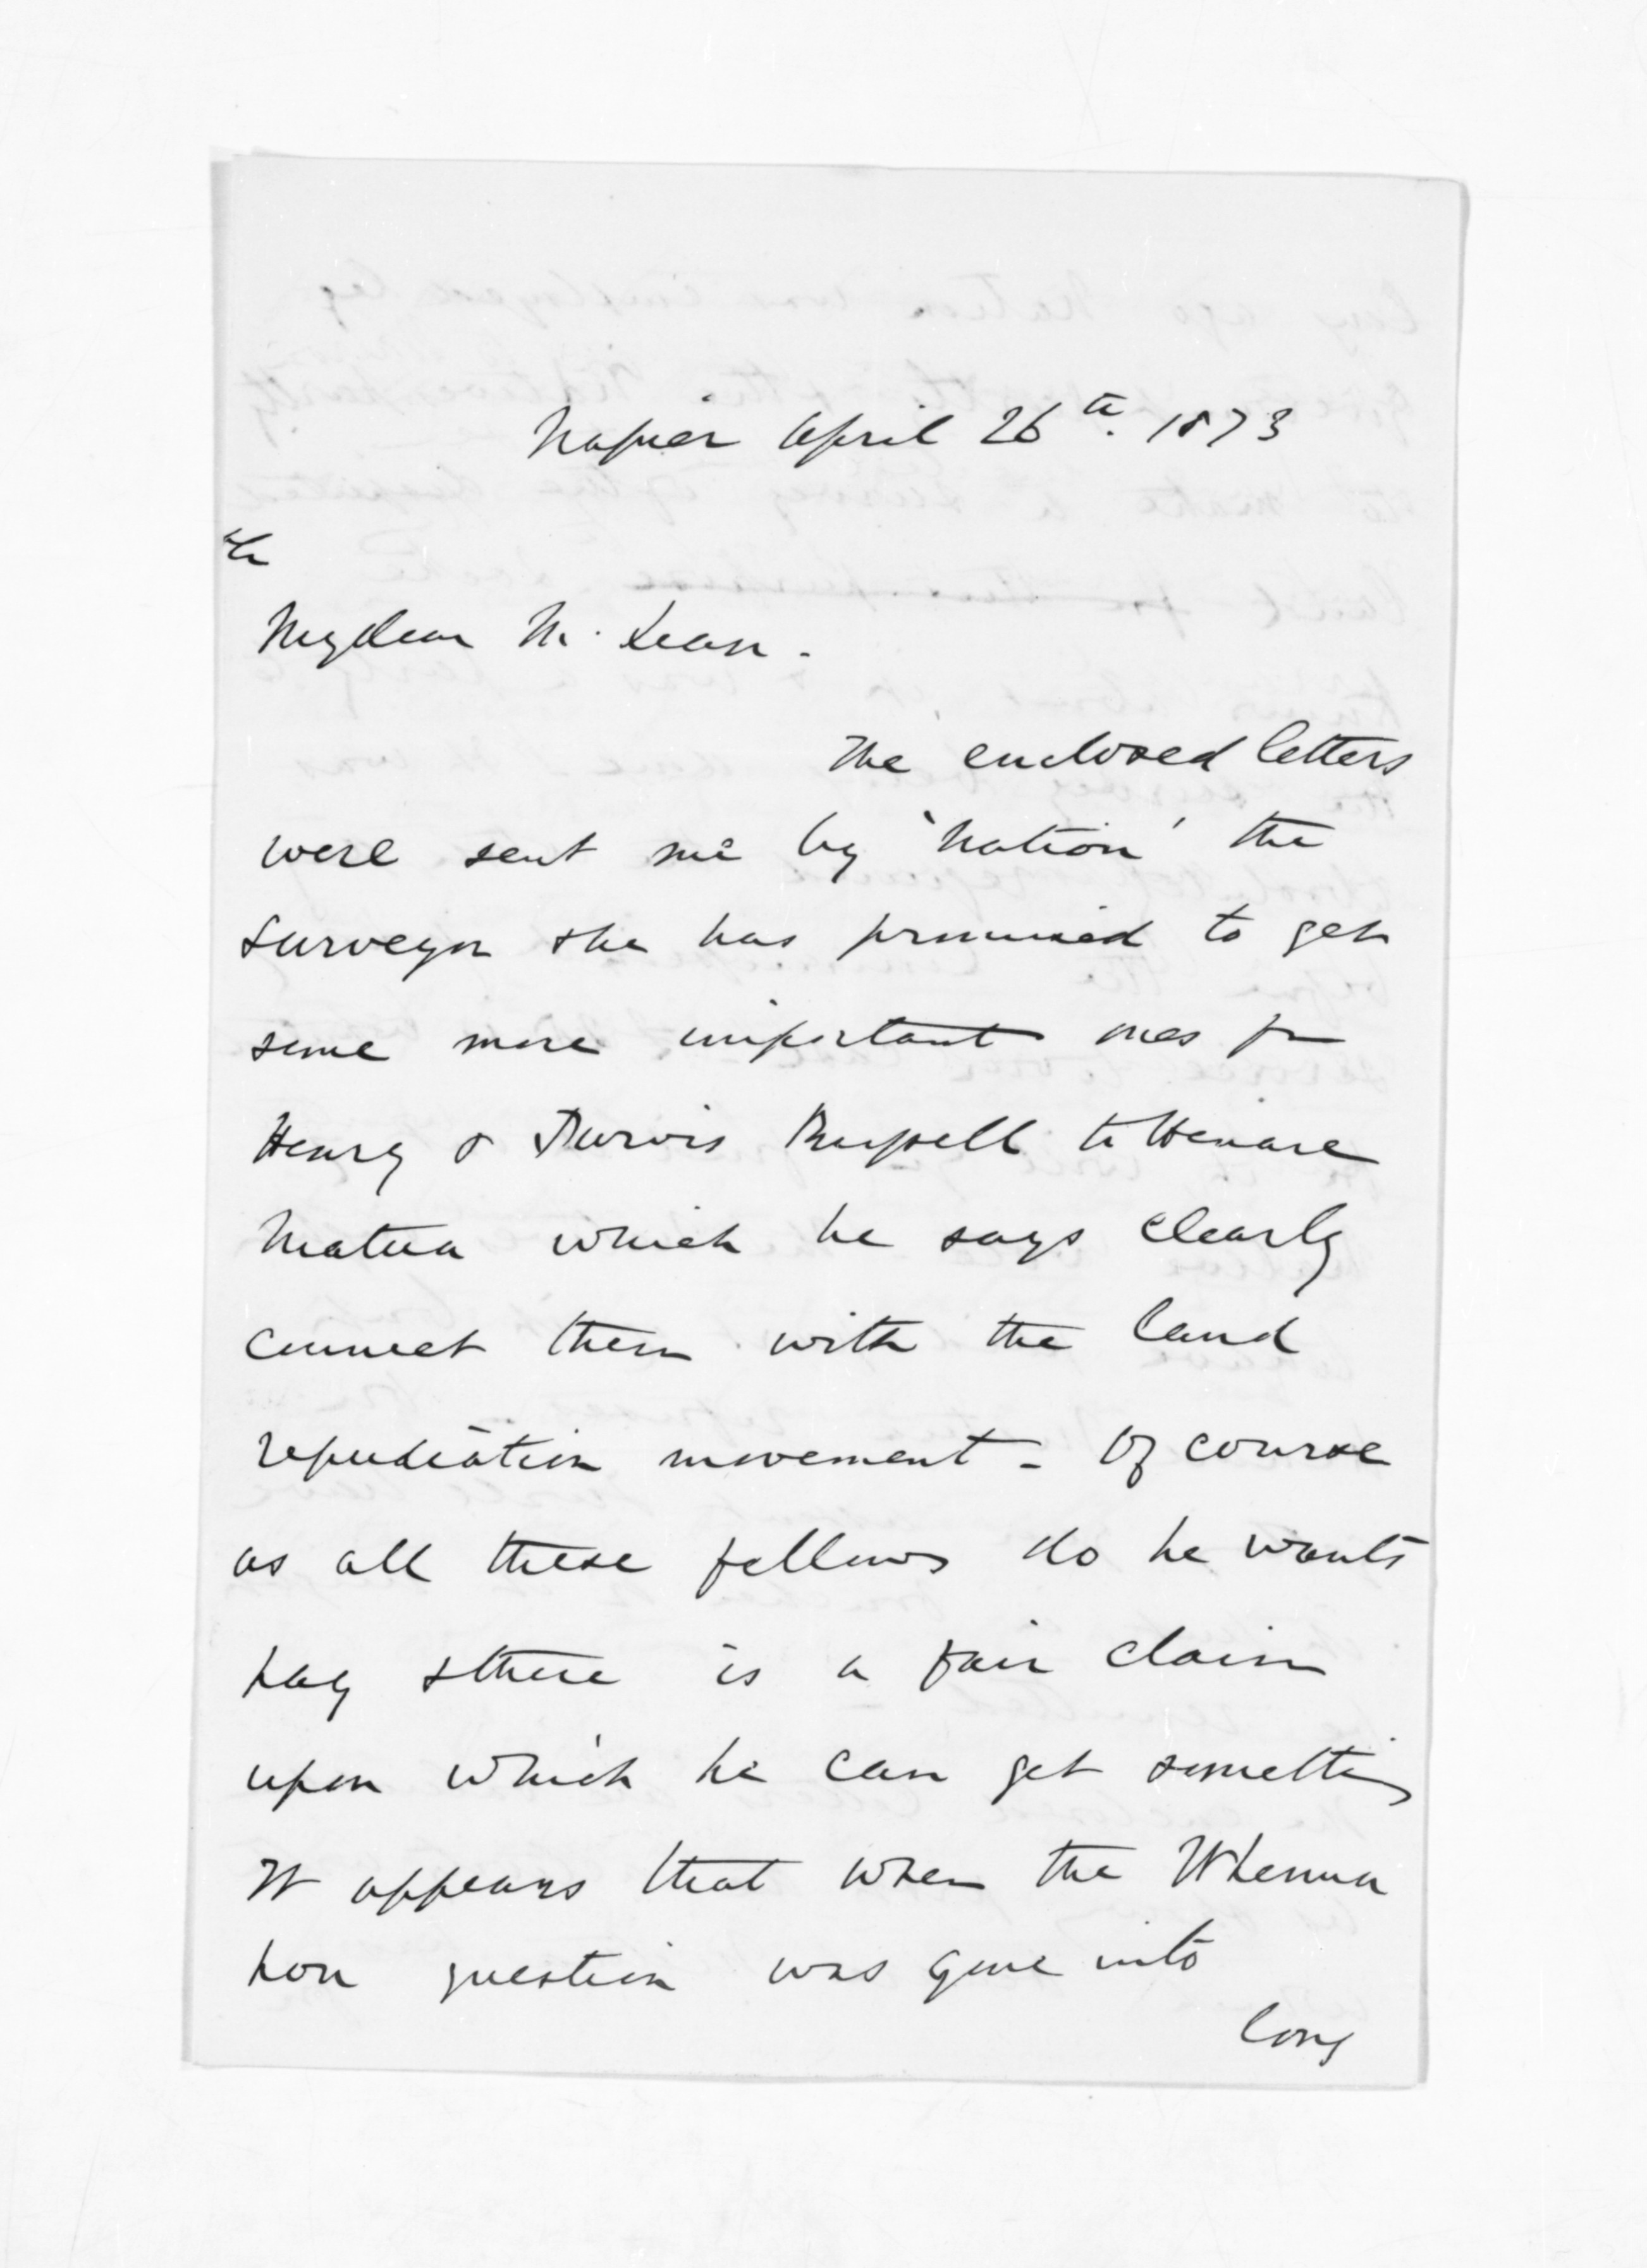 Napier April 26th. 1873
My dear McLean.
The enclosed letters
were sent me by 'Nation' the
Surveyor & he has promised to get
some more important ones fr
Henry & Purvis Russell to Henare
Matua which he says clearly
connect them with the land
repudiation movement - Of course
as all these fellows do he wants
pay & there is a fair claim
upon which he can get something
It appears that when the Whenua
hou question was gone into
long